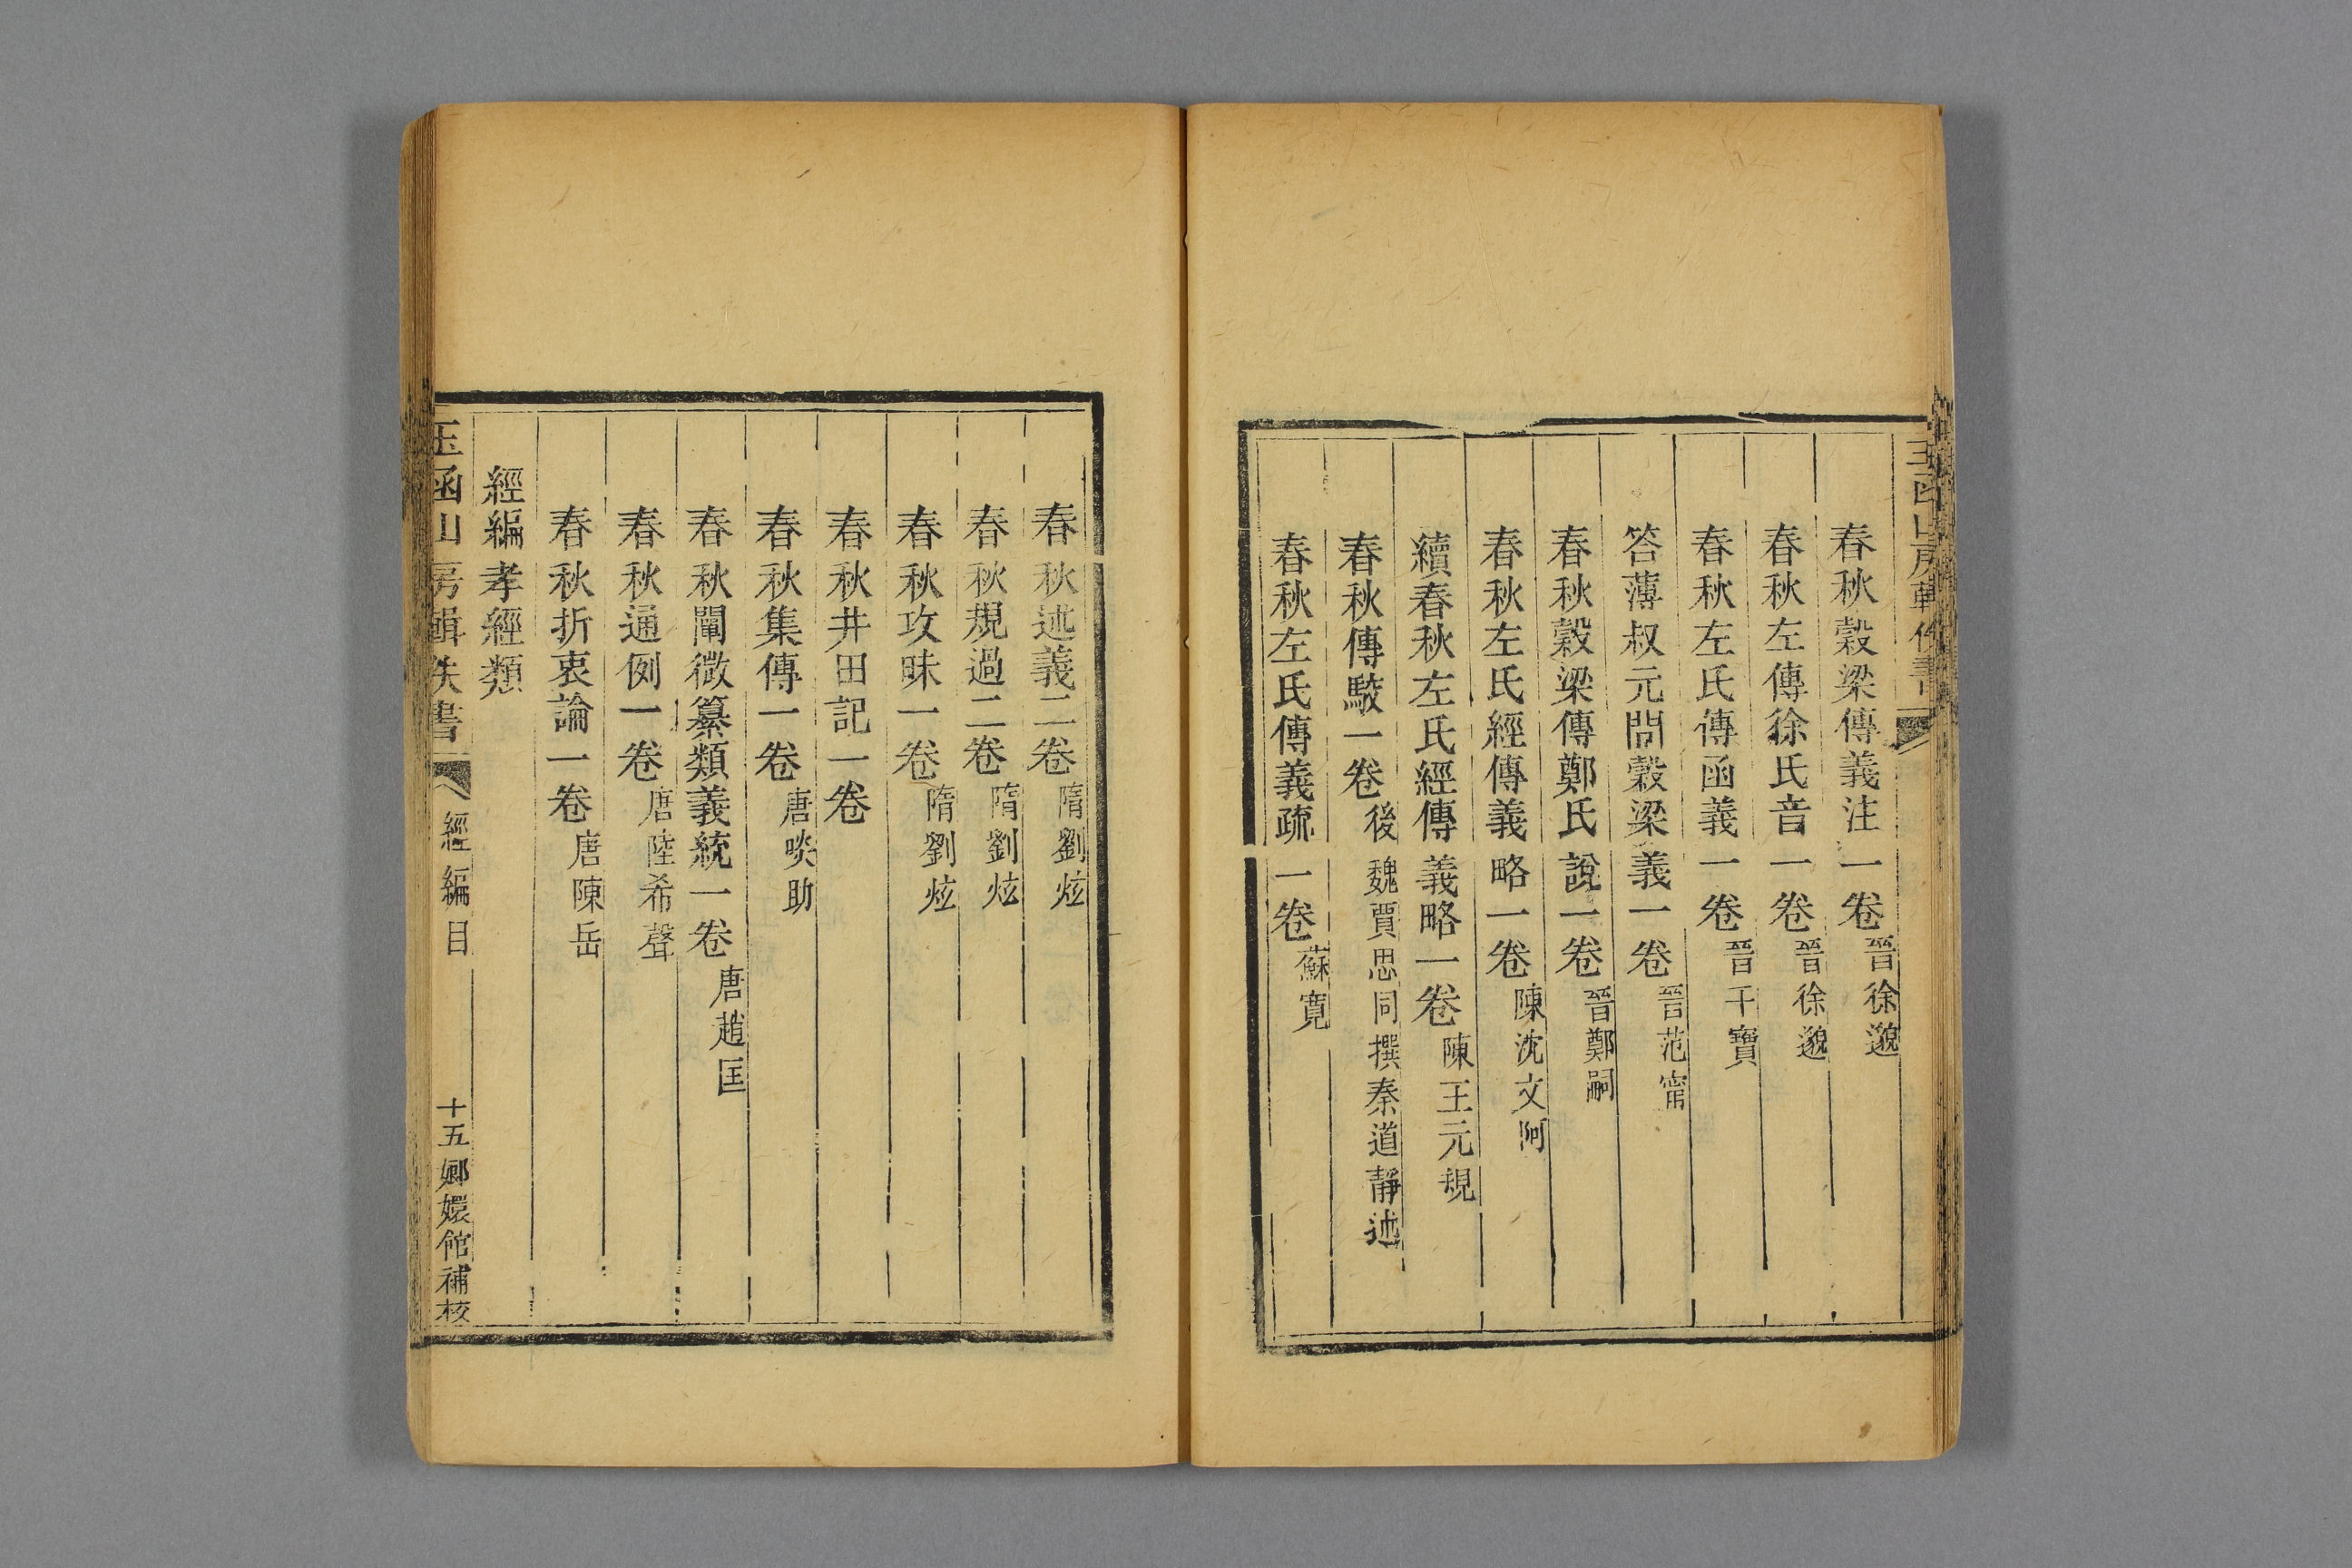 玉函山房輯佚書
春秋穀梁傳義注一卷晉徐邈
春秋左傳徐氏音一卷晉徐邈
春秋左氏傳函義一卷晉干寶
答薄叔元問穀梁義一卷晉范甯
春秋穀梁傳鄭氏說一卷晉鄭嗣
春秋左氏經傳義略一卷陳沈文阿
續春秋左氏經傳義略一卷陳王元規
春秋傳駮一卷後魏賈思同撰秦道靜述
春秋左氏傳義疏一卷蘇寬
春秋述義二卷隋劉炫
春秋規過二卷隋劉炫
春秋攻昧一卷隋劉炫
春秋井田記一卷
春秋集傳一卷唐啖助
春秋闡微纂類義統一卷唐趙匡
春秋通例一卷唐陸希聲
春秋折衷論一卷唐陳岳
經編孝經類
玉函山房輯佚書 經編目 十五 嫏嬛館補校